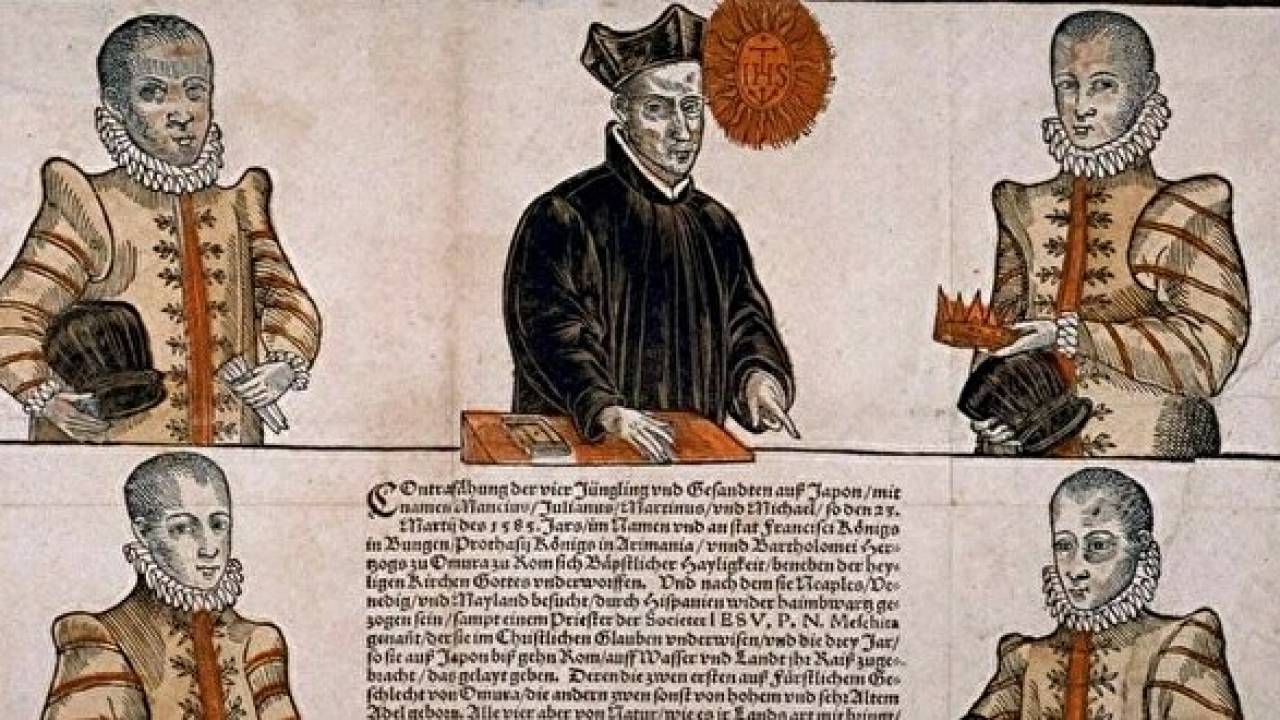 IHS
COntrafähung der vier Jüngling vnd Gesandten auß Japon/mit
namen Mancius/Julianus/Martinus/vnd Michael/so den 23.
Martij des 1585. Jars/im Namen vnd an stat Francisci Königs
in Bungen/Prothasij Königs in Arimania/vnnd Bartholomei Her-
tzogs zu Omura zu Rom sich Bäpstlicher Hayligkeit/beneben der hey-
ligen Kirchen Gottes vnderworffen. Vnd nach dem sie Neaples/Ve-
nedig/vnd Mayland besucht/durch Hispanien wider haimbwartz ge-
zogen sein/sampt einem Priester der Societet IESV, P. N. Meschita
genant/der sie im Christlichen Glauben vnderwisen/vnd die drey Jar/
so sie auß Japon biß gehn Rom/auff Wasser vnd Landt jhr Raiß zuge-
bracht/das gelayt geben. Deren die zwen ersten auß Fürstlichem Ge-
schlecht von Omura/die andern zwen sonst von hohem vnd sehr Altem
Adel geborn. Alle vier aber von Natur/wie es jr Lands art mit bringt/